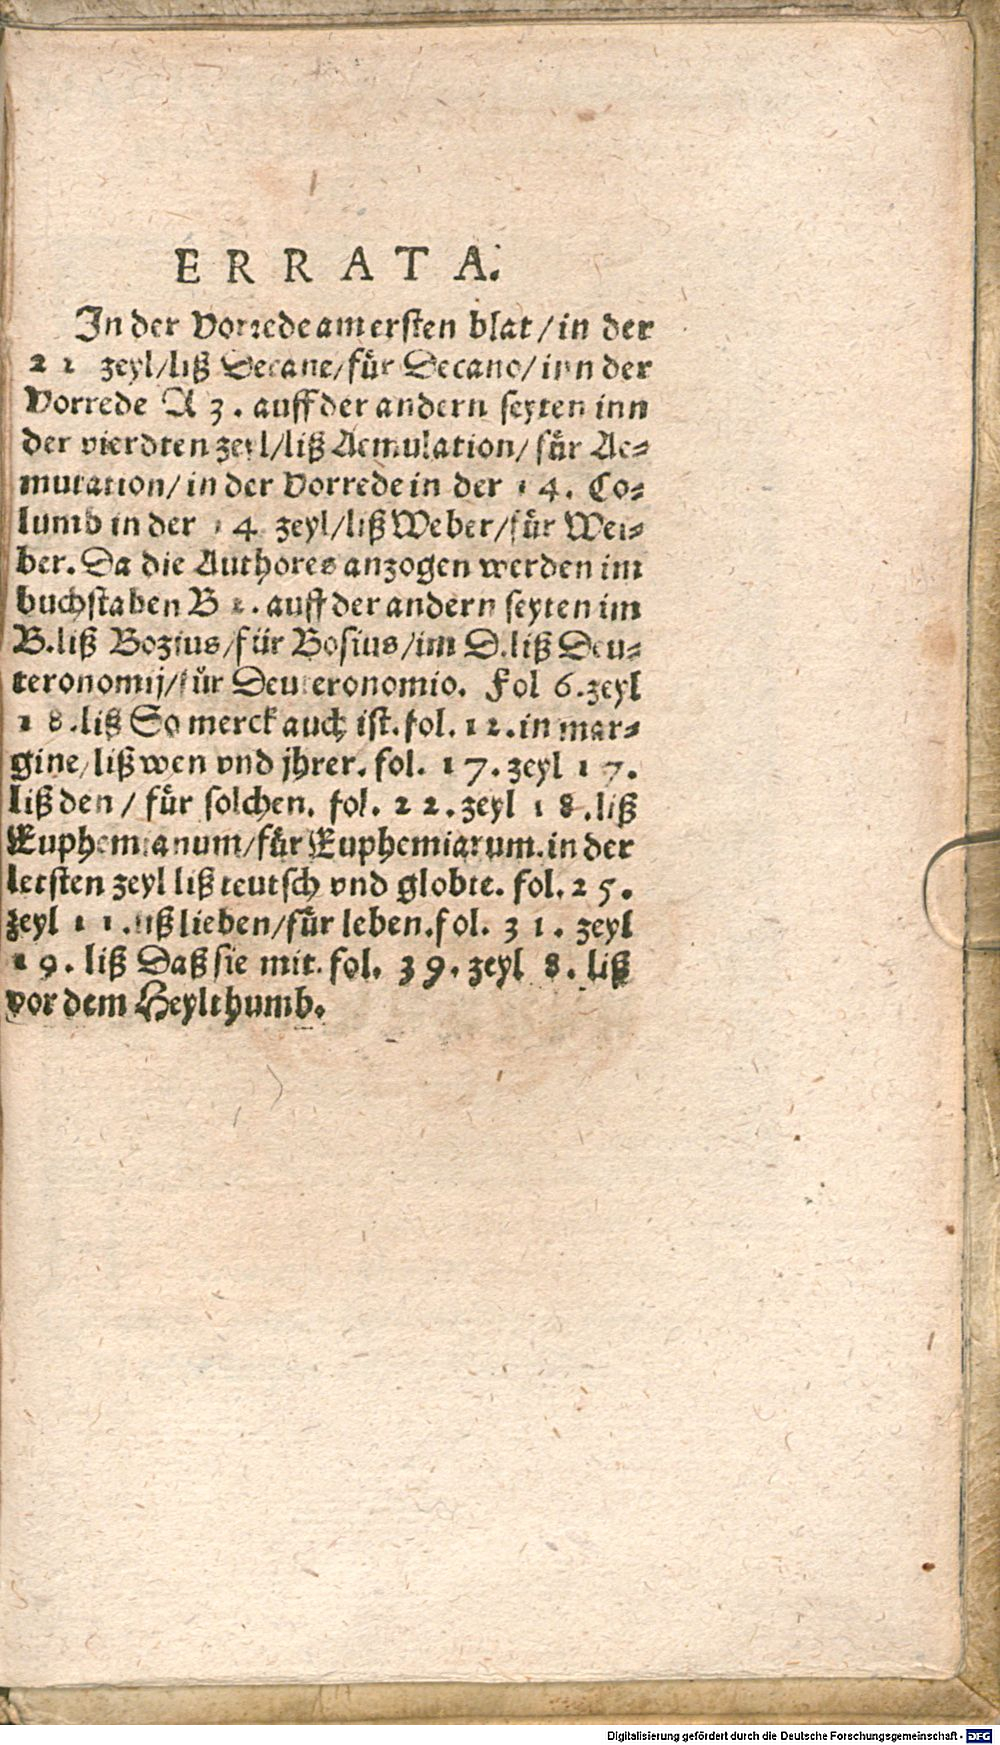 ERRATA.
In der Vorrede am ersten blat / in der
21 zeyl / liß Decane / für Decano / inn der
Vorrede A 3. auff der andern seyten inn
der vierdten zeyl / liß Aemulation / für Ae-
mutation / in der Vorrede in der 14. Co-
lumb in der 14 zeyl / liß Weber / für Wei-
ber. Da die Authores anzogen werden im
buchstaben B 2. auff der andern seyten im
B. liß Bozius / für Bosius / im D. liß Deu-
teronomij / für Deuteronomio. Fol 6. zeyl
18. liß So merck auch ist. fol. 12. in mar-
gine / liß wen vnd jhrer. fol. 17. zeyl 17.
liß den / für solchen. fol. 22. zeyl 18. liß
Euphemianum / für Euphemiarum. in der
letsten zeyl liß teutsch vnd globte. fol. 25.
zeyl 11. liß lieben / für leben. fol. 31. zeyl
19. liß Daß sie mit. fol. 39. zeyl 8. liß
vor dem Heylthumb.
Digitalisierung gefördert durch die Deutsche Forschungsgemeinschaft - DFG